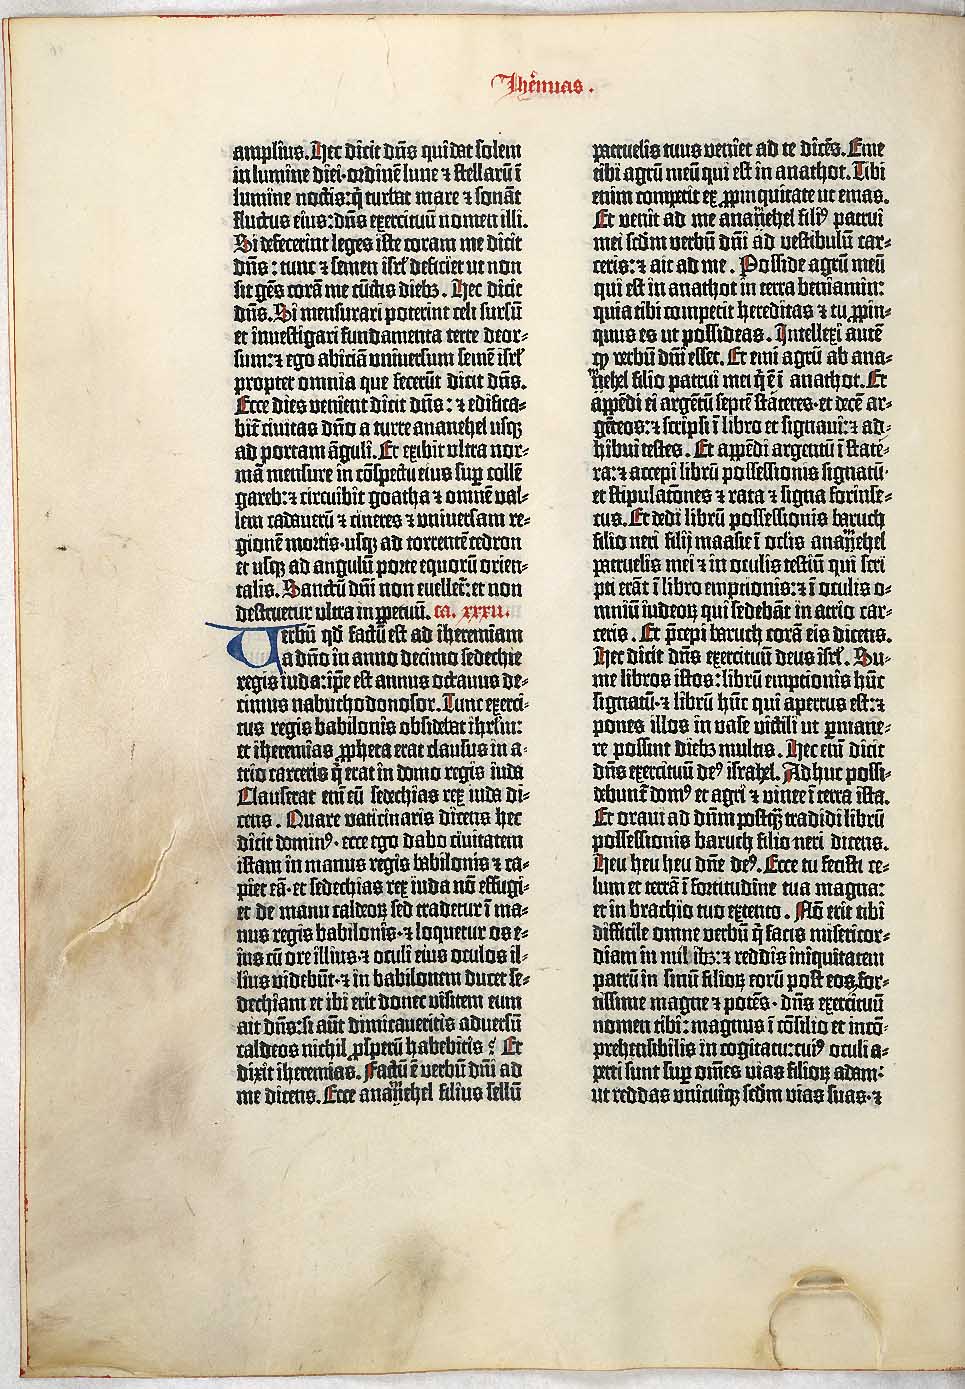 Jherēmias.
amplius. Hec dicit dn̄s qui dat solem
in lumine diei·ordinē lune ⁊ stellarū ī
lumine noctis: q̄ turbat mare ⁊ sonāt
fluctus eius: dn̄s exercituū nomen illi.
Si defecerint leges iste coram me dicit
dn̄s: tunc ⁊ semen isrl̄ deficiet ut non
sit gēs corā me cūctis diebꝫ. Hec dicit
dn̄s. Si mensurari poterint celi sursū
et investigari fundamenta terre deor-
sum: ⁊ ego abiciā universum semē isrl̄
propter omnia que fecerūt dicit dn̄s.
Ecce dies venient dicit dn̄s: ⁊ edifica-
bit̄ civitas dn̄o a turre ananehel usqꝫ
ad portam āguli. Et exibit ultra nor-
mā mensure in cōspectu eius sup̄ collē
gareb: ⁊ circuibit goatha ⁊ omnē val-
lem cadaverū ⁊ cineres ⁊ universam re-
gionē mortis·usqꝫ ad torrentē cedron
et usqꝫ ad angulū porte equorū orien-
talis. Sanctū dn̄i non evellet̄: et non
destruetur ultra in ꝑpetuū. ca. xxxii.
Verbū qd̄ factū est ad iheremiam
a dn̄o in anno decimo sedechie
regis iuda: ip̄e est annus octavus de-
cimus nabuchodonosor. Tunc exerci-
tus regis babilonis obsidebat ihrl̄m:
et iheremias ꝓpheta erat clausus in a-
trio carceris q̄ erat in domo regis iuda
Clauserat eni̅ eū sedechias rex iuda di-
cens. Quare vaticinaris dicens hec
dicit dominꝰ·ecce ego dabo civitatem
istam in manus regis babilonis ⁊ ca-
piet eā·et sedechias rex iuda nō effugi-
et de manu caldeoꝝ sed tradetur ī ma-
nus regis babilonis·⁊ loquetur os e-
ius cū ore illius·⁊ oculi eius oculos il-
lius videbūt·⁊ in babilonem ducet se-
dechiam et ibi erit donec visitem eum
ait dn̄s: si aūt dimicaveritis adversū
caldeos nichil ꝓsperū habebitis? Et
dixit iheremias. Factū ē verbū dn̄i ad
me dicens. Ecce anamehel filius sellū
patruelis tuus veniet ad te dicēs. Eme
tibi agrū meū qui est in anathot. Tibi
enim competit ex ꝓpinquitate ut emas.
Et venit ad me anamehel filiꝰ patrui
mei scd̄m verbū dn̄i ad vestibulū car-
ceris: ⁊ ait ad me. Posside agrū meū
qui est in anathot in terra beniamin:
quia tibi competit hereditas ⁊ tu ꝓpin-
quus es ut possideas. Intellexi autē
qꝫ verbū dn̄i esset. Et emi agrū ab ana-
mehel filio patrui mei q̄ ē ī anathot. Et
appēdi ei argētū septē stateres·et decē ar-
gēteos: ⁊ scripsi ī libro et signavi: ⁊ ad-
hibui testes. Et appēdi argentū ī state-
ra: ⁊ accepi librū possessionis signatū·
et stipulatōnes ⁊ rata ⁊ signa forinse-
cus. Et dedi librū possessionis baruch
filio neri filij maasie ī oclis anamehel
patruelis mei ⁊ in oculis testiū qui scri
pti erāt ī libro emptionis: ⁊ ī oculis o-
mniū iudeoꝝ qui sedebāt in atrio car-
ceris. Et p̄cepi baruch corā eis dicens.
Hec dicit dn̄s exercituū deus isrl̄. Su-
me libros istos: librū emptionis hūc
signatū·⁊ librū hūc qui apertus est: ⁊
pones illos in vase victili ut ꝑmane-
re possint diebꝫ multis. Hec eni̅ dicit
dn̄s exercituū deꝰ israhel. Adhuc possi-
debunt̄ domꝰ et agri ⁊ vinee ī terra ista.
Et oravi ad dn̄m postqꝫ tradidi librū
possessionis baruch filio neri dicens.
Heu heu heu dn̄e deꝰ. Ecce tu fecisti ce-
lum et terrā ī fortitudine tua magna:
et in brachio tuo extento. Nō erit tibi
difficile omne verbū q̄ facis misericor-
diam in milibꝫ: ⁊ reddis iniquitatem
patrū in sinū filioꝝ eorū post eos. for-
tissime magne ⁊ potēs·dn̄s exercituū
nomen tibi: magnus ī cōsilio et incō-
prehensibilis in cogitatu: cuiꝰ oculi a-
perti sunt sup̄ om̄es vias filioꝝ adam:
ut reddas unicuiqꝫ scd̄m vias suas·⁊